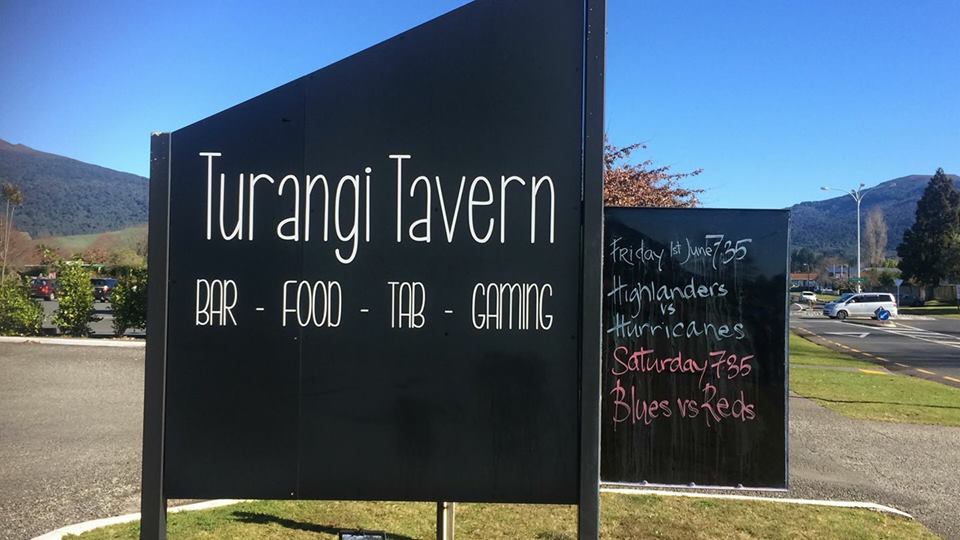 Turangi Tavern
BAR - FOOD - TAB - GAMING
Friday 1st June 7:35
Highlanders
vs
Hurricanes
Saturday 7:35
Blues vs Reds